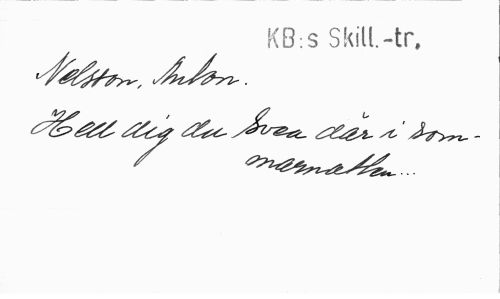 KB:s Skill.-tr.
Nelsson, Anton.
Hell dig du Svea där i som-
marnatten...